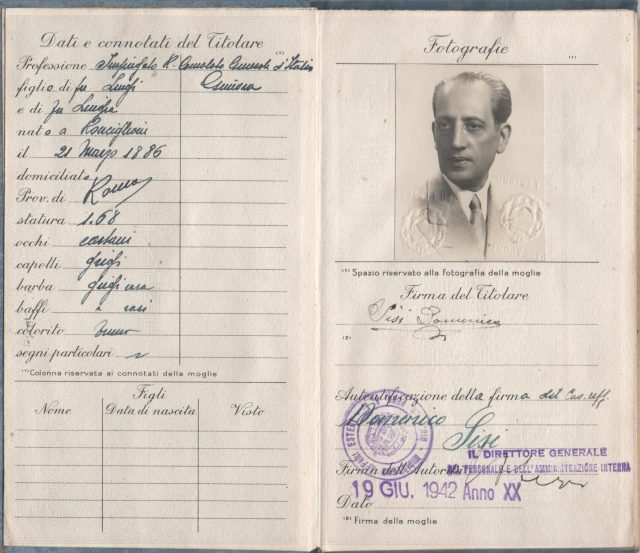 Dati e connotati del Titolare
(1)
Professione Impiegato R. Consolato Generale d'Italia
figlio di fu Luigi
e di fu Luigia
nato a Ronciglione
il 21 Marzo 1886
domiciliato
Prov. di Roma
statura 1.68
occhi castani
capelli grigi
barba grigi rasa
baffi " rasi
colorito bruno
segni particolari
(1) Colonna riservata ai connotati della moglie
Figli
Nome Data di nascita Visto
Fotografie
(1)
(1) Spazio riservato alla fotografia della moglie
Firma del Titolare
Sisi Domenico
(2)
Autentificazione della firma del
Domenico Sisi
IL DIRETTORE GENERALE
Firma dell'Autorità DEL PERSONALE E DELL'AMMINISTRAZIONE INTERNA
19 GIU. 1942 Anno XX
Data
(2) Firma della moglie